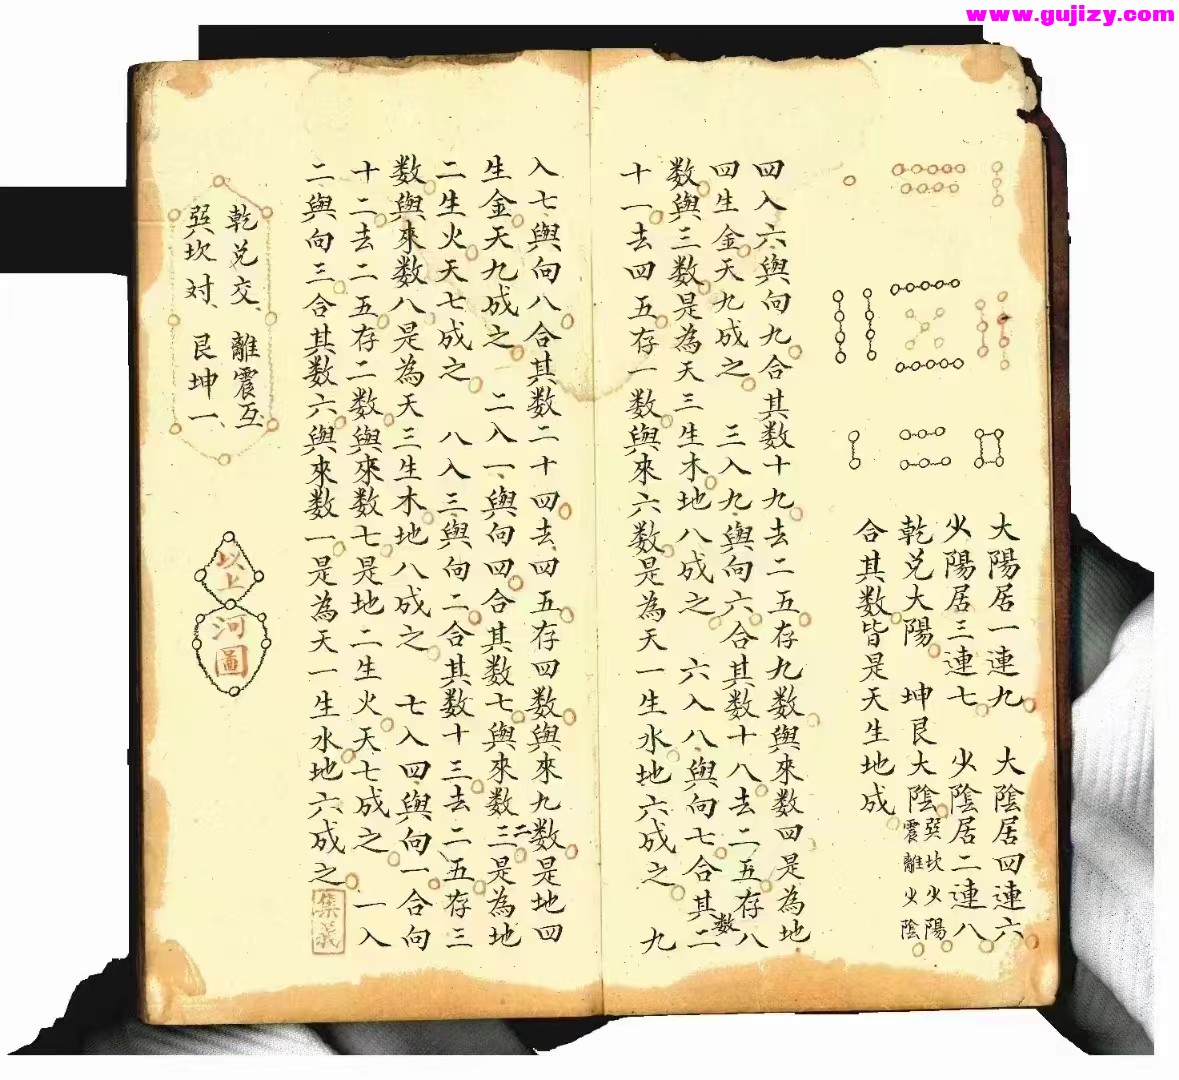 www.gujizy.com
大陽居一連九 大陰居四連六
少陽居三連七 少陰居二連八
乾兌大陽 坤艮大陰 巽坎少陽 震離少陰
合其数皆是天生地成
四入六與向九合其数十九去二五存九数與來数四是為地
四生金天九成之 三入九與向六合其数十八去二五存八
数與三数是為天三生木地八成之 六入八與向七合其数二
十一去四五存一数與來六数是為天一生水地六成之 九
入七與向八合其数二十四去四五存四数與來九数是地四
生金天九成之 二入一與向四合其数七與來数二三是為地
二生火天七成之 八入三與向二合其数十三去二五存三
数與來数八是為天三生木地八成之 七入四與向一合向
十二去二五存二数與來数七是地二生火天七成之 一入
二與向三合其数六與來数一是為天一生水地六成之 集義
乾兌交、離震互
巽坎对、艮坤一、
以上河圖